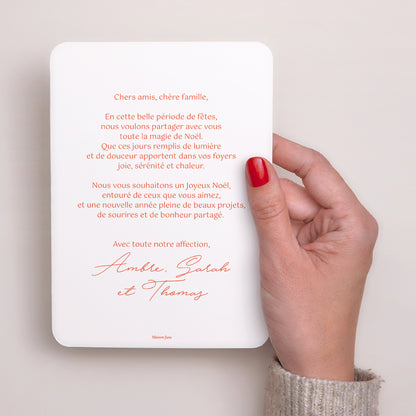 Chers amis, chère famille,
En cette belle période de fêtes,
nous voulons partager avec vous
toute la magie de Noël.
Que ces jours remplis de lumière
et de douceur apportent dans vos foyers
joie, sérénité et chaleur.
Nous vous souhaitons un Joyeux Noël,
entouré de ceux que vous aimez,
et une nouvelle année pleine de beaux projets,
de sourires et de bonheur partagé.
Avec toute notre affection,
Ambre, Sarah
et Thomas